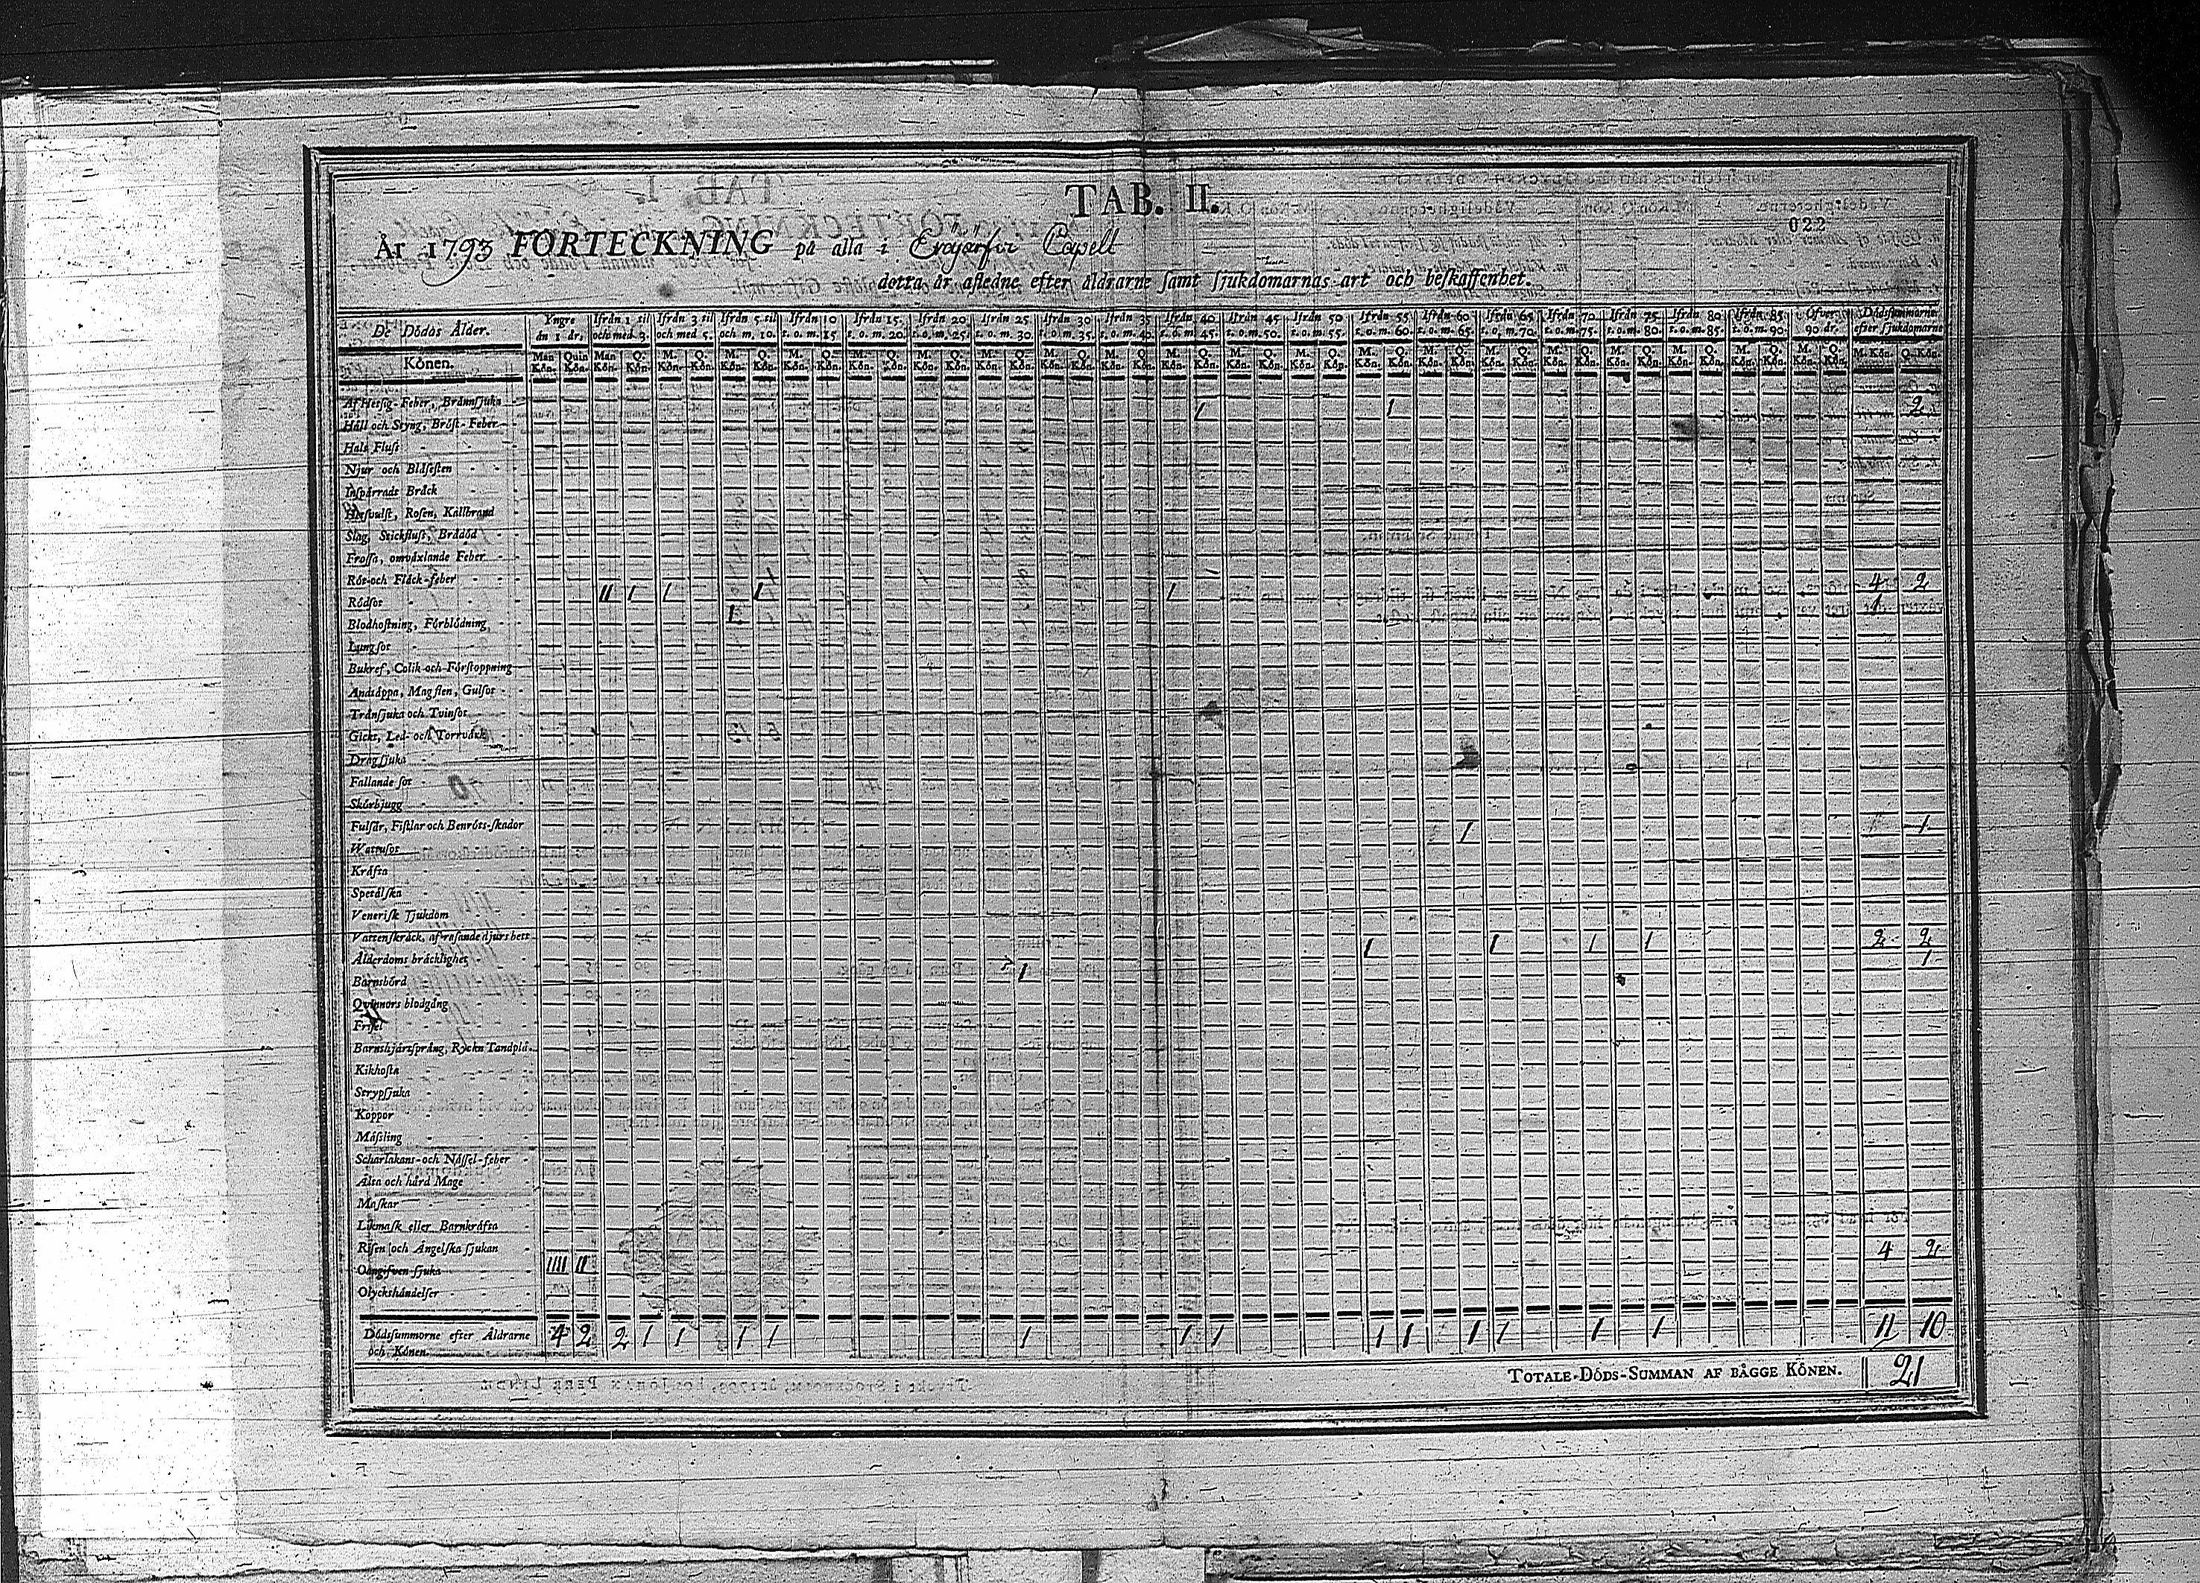 TAB. II.
022
År 1793 FORTECKNING på alla i Capell
detta år afledne efter åldrarne samt sjukdomarnas art och beskaffenhet.
De Dödas Ålder. Yngre än 1 år. Ifrån 1 til och med 3. Ifrån 3 til och med 5. Ifrån 5 til och m. 10. Ifrån 10 t. o. m. 15 Ifrån 15 t. o. m. 20. Ifrån 20 t. o. m. 25. Ifrån 25 t. o. m. 30. Ifrån 30 t. o. m. 35. Ifrån 35 t. o. m. 40. Ifrån 40 t. o. m. 45. Ifrån 45 t. o. m. 50. Ifrån 50 t. o. m. 55. Ifrån 55 t. o. m. 60. Ifrån 60 t. o. m. 65. Ifrån 65 t. o. m. 70. Ifrån 70 t. o. m. 75. Ifrån 75 t. o. m. 80. Ifrån 80 t. o. m. 85. Ifrån 85 t. o. m. 90. Öfver 90 år. Dödssummorne efter sjukdomarne
Könen. Man Kön. Quin Kön. Man Kön. Q. Kön. M. Kön. Q. Kön. M. Kön. Q. Kön. M. Kön. Q. Kön. M. Kön. Q. Kön. M. Kön. Q. Kön. M. Kön. Q. Kön. M. Kön. Q. Kön. M. Kön. Q. Kön. M. Kön. Q. Kön. M. Kön. Q. Kön. M. Kön. Q. Kön. M. Kön. Q. Kön. M. Kön. Q. Kön. M. Kön. Q. Kön. M. Kön. Q. Kön. M. Kön. Q. Kön. M. Kön. Q. Kön. M. Kön. Q. Kön. M. Kön. Q. Kön. M. Kön. Q. Kön.
Af Hetsig-Feber, Brännsjuka 1 1 2
Håll och Styng, Bröst-Feber
Hals Flust
Njur och Blåsesten
Inspärrade Bråck
Hetsvulst, Rosen, Kallbrand
Slag, Stickflust, Brådöd
Frossa, omväxlande Feber
Röt-och Fläck-feber
Rödsot II 1 1 1 1 4 2
Blodhostning, Förblödning 1 1
Lungsot
Bukref, Colik och Förstoppning
Andtäppa, Magsten, Gulsot
Tränsjuka och Tvinsot
Gickt, Led- och Torrvärk
Dragsjuka
Fallande sot
Skörbjugg
Fulsår, Fistlar och Benröts-skador
Wattusot 1 1
Kräfta
Spetälska
Venerisk Sjukdom
Vattenskräck, af rasande djurs bett
Ålderdoms bräcklighet 1 1 1 1 2 2
Barnsbörd 1 1
Qvinnors blodgång
Frisel
Barnshjärtsprång, Ryckn Tandplå.
Kikhosta
Strypsjuka
Koppor
Mässling
Scharlakans-och Nässel-feber
Älta och hård Mage
Maskar
Likmask eller Barnkräfta
Risen och Ängelska sjukan
Oangifven sjuka IIII II 4 2
Olyckshändelser
Dödssummorne efter Åldrarne 4 2 2 1 1 1 1 1 1 1 1 1 1 1 1 1 11 10
och Könen.
TOTALE-DÖDS-SUMMAN AF BÅGGE KÖNEN. 21